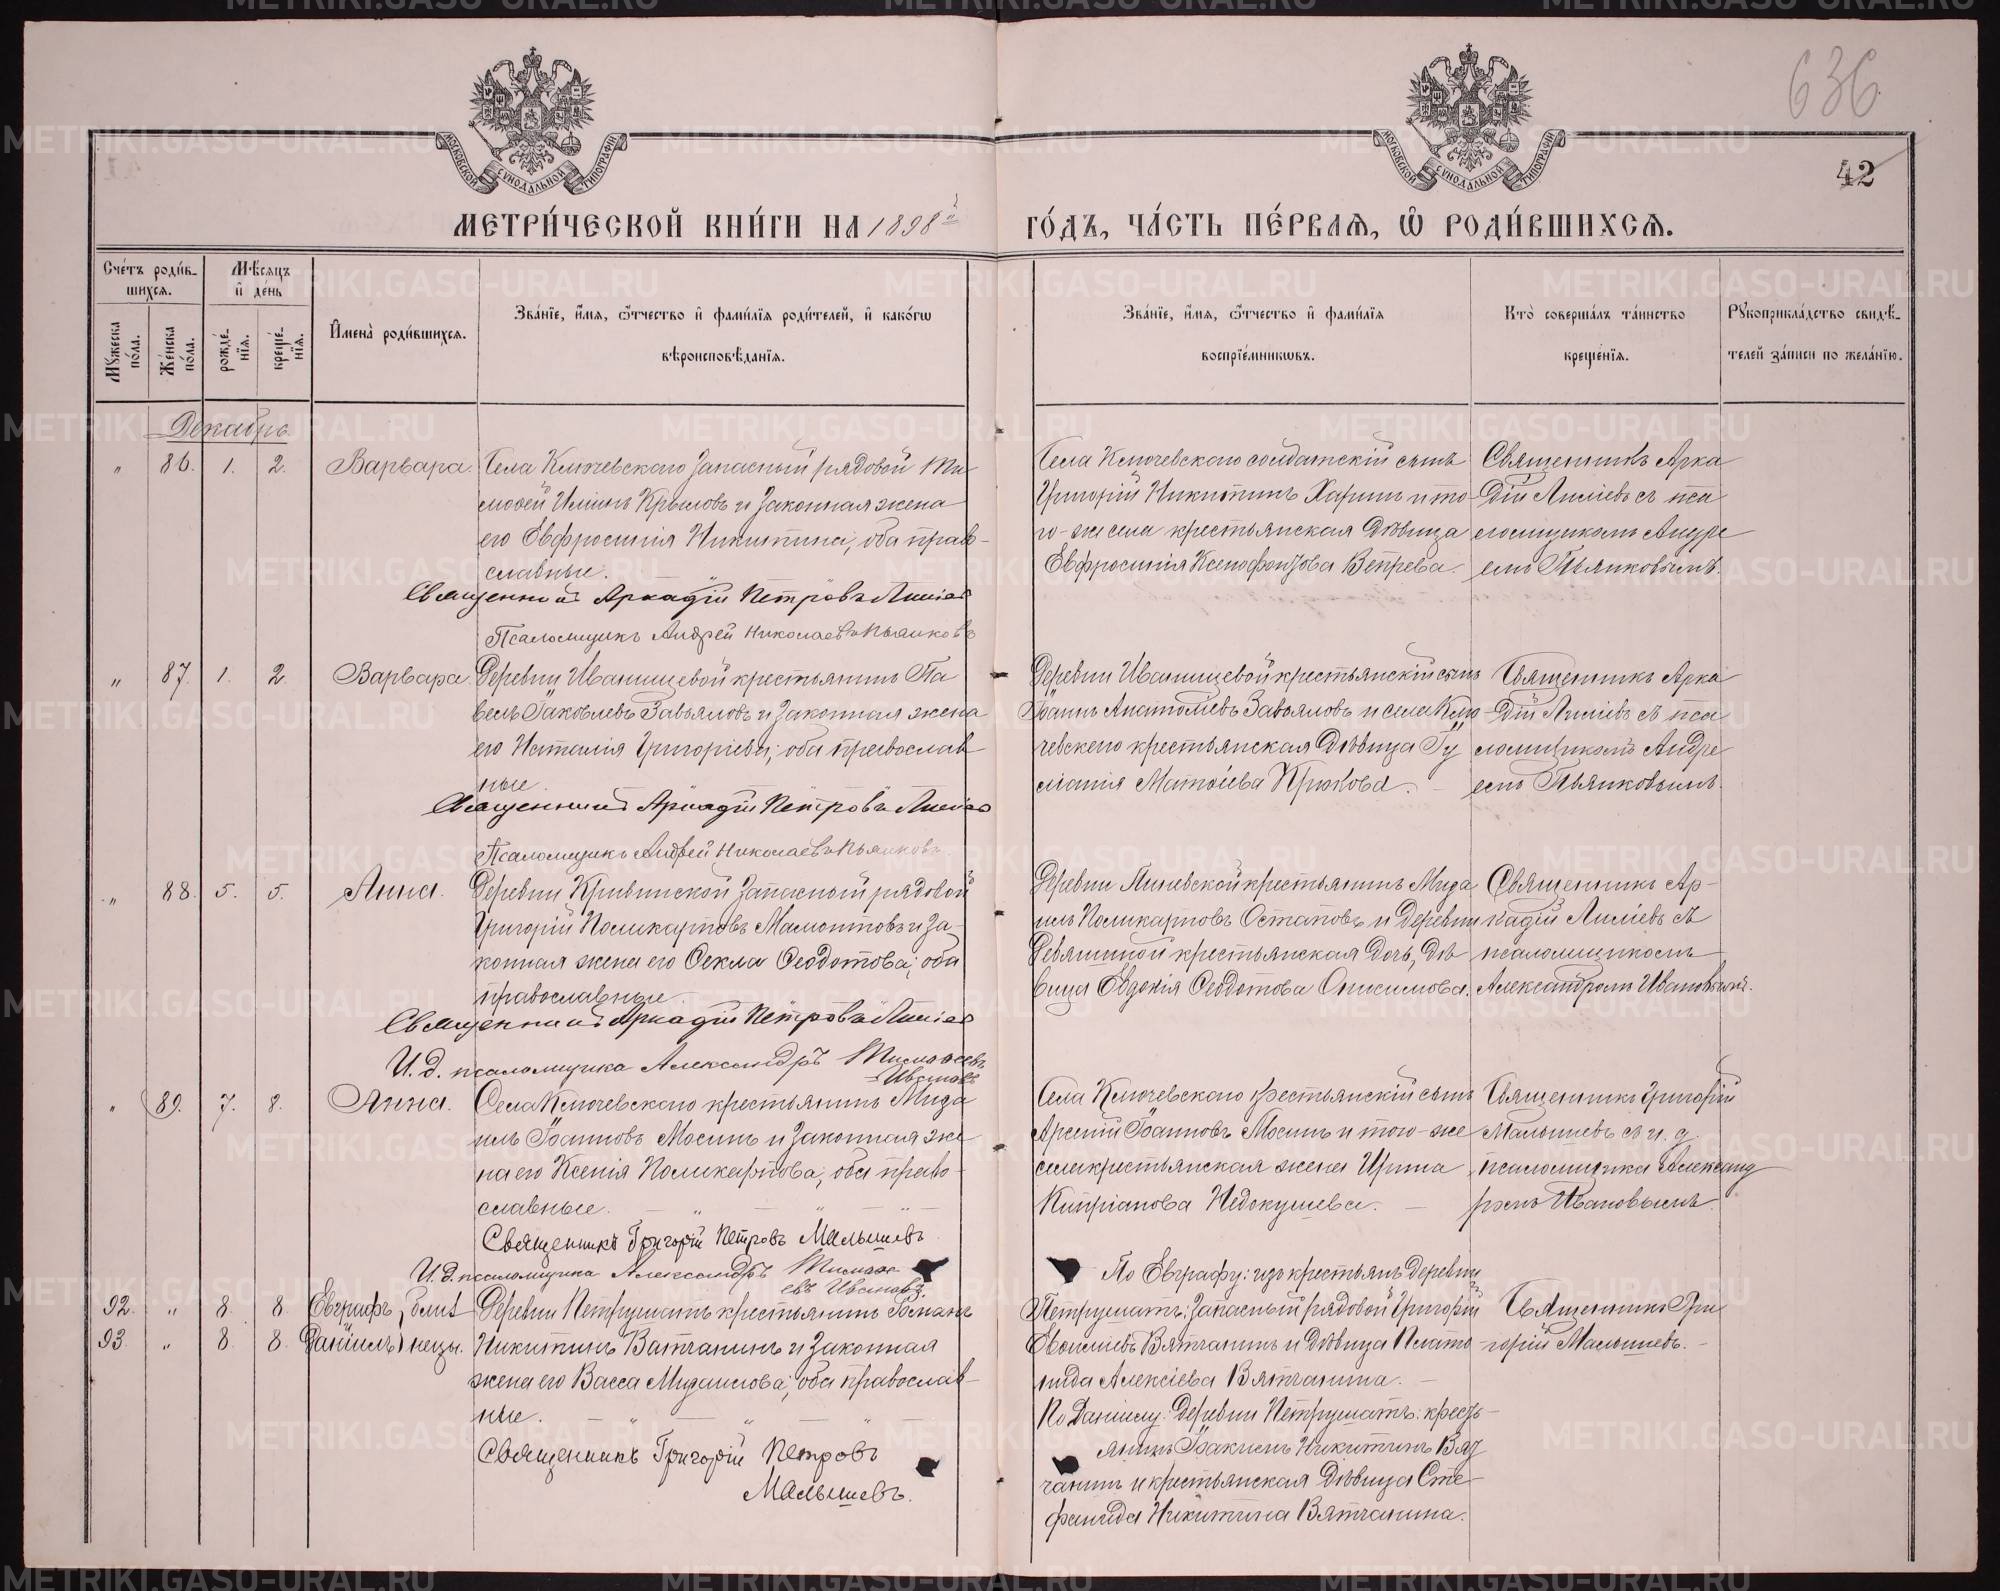 636
42
МОСКОВСКОЙ СѴНОДАЛЬНОЙ ТИПОГРАФІИ
МОСКОВСКОЙ СѴНОДАЛЬНОЙ ТИПОГРАФІИ
МЕТРИ́ЧЕСКОЙ КНИ́ГИ НА 1898й ГО́ДЪ, ЧА́СТЬ ПЕ́РВАѦ, Ѽ РОДИ́ВШИХСѦ.
Сче́тъ роди́в-
шихсѧ.
Мꙋ́жеска по́ла.
Же́нска по́ла.
Мѣ́сѧцъ и де́нь
рожде́нїѧ.
креще́нїѧ.
Имена̀ роди́вшихсѧ.
Зва́нїе, и́мѧ, ѻ҆́тчество и фами́лїѧ роди́телей, и како́гѡ
вѣроисповѣ́данїѧ.
Зва́нїе, и́мѧ, ѻ҆́тчество и фами́лїѧ
воспрїе́мникѡвъ.
Кто̀ соверша́лъ та́инство
креще́нїѧ.
Рꙋкоприкла́дство свидѣ́-
телей за́писи по жела́нїю.
Декабрь
" 86. 1. 2. Варвара.
Села Ключевскаго запасный рядовой Ти-
моѳей Ильинъ Крыловъ и законная жена
его Евфросинія Никитина, оба право-
славные.
Священникъ Аркадій Петровъ Лисіевъ
Псаломщикъ Андрей Николаевъ Пьянковъ
Села Ключевскаго солдатскій сынъ
Григорій Никитинъ Харинъ и то-
го-же села крестьянская дѣвица
Евфросинія Ксенофонтова Вепрева.
Священникъ Арка
дій Лисіевъ съ пса
ломщикомъ Андре
емъ Пьянковымъ.
" 87. 1. 2. Варвара.
Деревни Иванищевой крестьянинъ Па
велъ Іаковлевъ Завьяловъ и законная жена
его Наталія Григоріева, оба православ
ные.
Священникъ Аркадій Петровъ Лисіевъ
Псаломщикъ Андрей Николаевъ Пьянковъ.
Деревни Иванищевой крестьянскій сынъ
Іоаннъ Анатоліевъ Завьяловъ и села Клю-
чевскаго крестьянская дѣвица Іу
ліанія Матѳіева Крюкова.
Священникъ Арка
дій Лисіевъ съ пса
ломщикомъ Андре
емъ Пьянковымъ.
" 88. 5. 5. Анна.
Деревни Кривинской запасный рядовой
Григорій Поликарповъ Мамонтовъ и за-
конная жена его Ѳекла Ѳеодотова; оба
православные.
Священникъ Аркадій Петровъ Лисіевъ
И. д. псаломщика Александръ Тимоѳеевъ
Ивановъ
крестьянинъ Миха
илъ Поликарповъ Остаповъ и деревни
Девяшиной крестьянская дочь, дѣ
вица Евдокія Ѳеодотова Анисимова.
Священникъ Ар-
кадій Лисіевъ съ
псаломщикомъ
Александромъ Ивановымъ.
" 89. 7. 8. Анна.
Села Ключевскаго крестьянинъ Миха
илъ Іоанновъ Мосинъ и законная же
на его Ксенія Поликарпова, оба право-
славные.
Священникъ Григорій Петровъ Малышевъ
И. д. псаломщика Александръ Тимоѳе
евъ Ивановъ.
Села Ключевскаго крестьянскій сынъ
Арсеній Іоанновъ Мосинъ и того-же
села крестьянская жена Ирина
Кипріанова Недокушева.
Священникъ Григорій
Малышевъ съ и. д.
псаломщика Александ
ромъ Ивановымъ.
92. " 8. 8. Евграфъ, близ
93. " 8. 8. Даніилъ нецы.
Деревни Петрушатъ крестьянинъ
Никитинъ Вятчанинъ и законная
жена его Васса Михаилова; оба православ-
ные.
Священникъ Григорій Петровъ
Малышевъ.
По Евграфу: изъ крестьянъ деревни
Петрушатъ: запасный рядовой Григорій
Вятчанинъ и дѣвица Плато-
нида Алексіева Вятчанина.
По Даніилу: деревни Петрушатъ: кресть-
янинъ Іоакимъ Никитинъ Вят
чанинъ и крестьянская дѣвица Сте-
фанида Никитина Вятчанина.
Священникъ Гри
горій Малышевъ.
METRIKI.GASO-URAL.RU